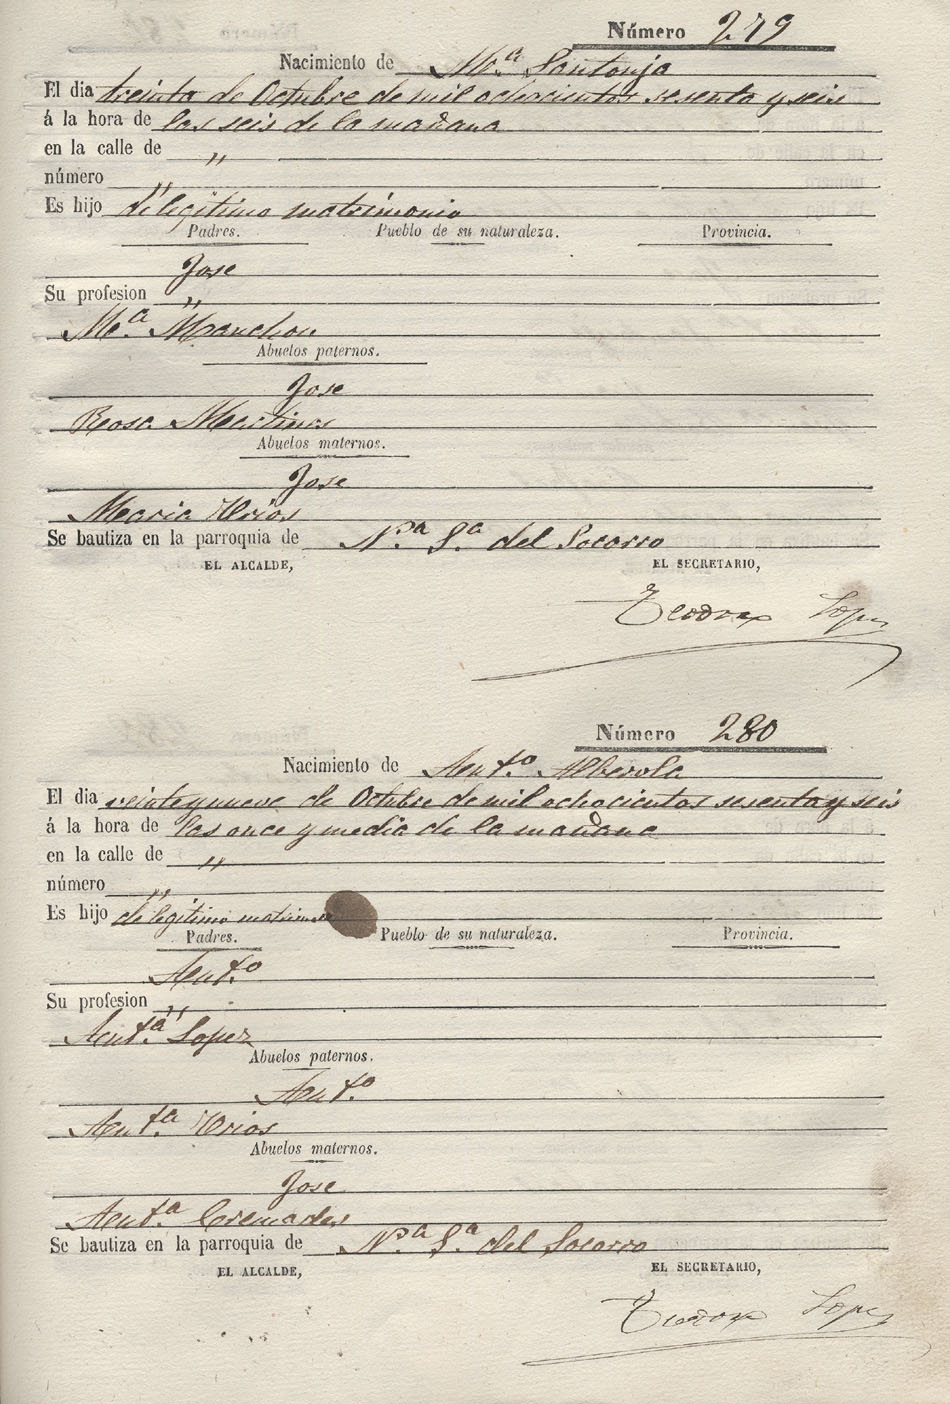 Número 279
Nacimiento de Mª Santonja
El dia treinta de Octubre de mil ochocientos sesenta y seis
á la hora de las seis de la mañana
en la calle de "
número "
Es hijo de legitimo matrimonio
Padres. Pueblo de su naturaleza. Provincia.
Jose
Su profesion "
Mª Manchon
Abuelos paternos.
Jose
Rosa Martinez
Abuelos maternos.
Jose
Maria Urios
Se bautiza en la parroquia de Nª Sª del Socorro
EL ALCALDE, EL SECRETARIO,
Teodoro Lopez
Número 280
Nacimiento de Antº Alberola
El dia veinte y nueve de Octubre de mil ochocientos sesenta y seis
á la hora de las once y media de la mañana
en la calle de "
número "
Es hijo de legitimo matrimonio
Padres. Pueblo de su naturaleza. Provincia.
Antº
Su profesion "
Antª Lopez
Abuelos paternos.
Antº
Antª Urios
Abuelos maternos.
Jose
Antª Cremades
Se bautiza en la parroquia de Nª Sª del Socorro
EL ALCALDE, EL SECRETARIO,
Teodoro Lopez